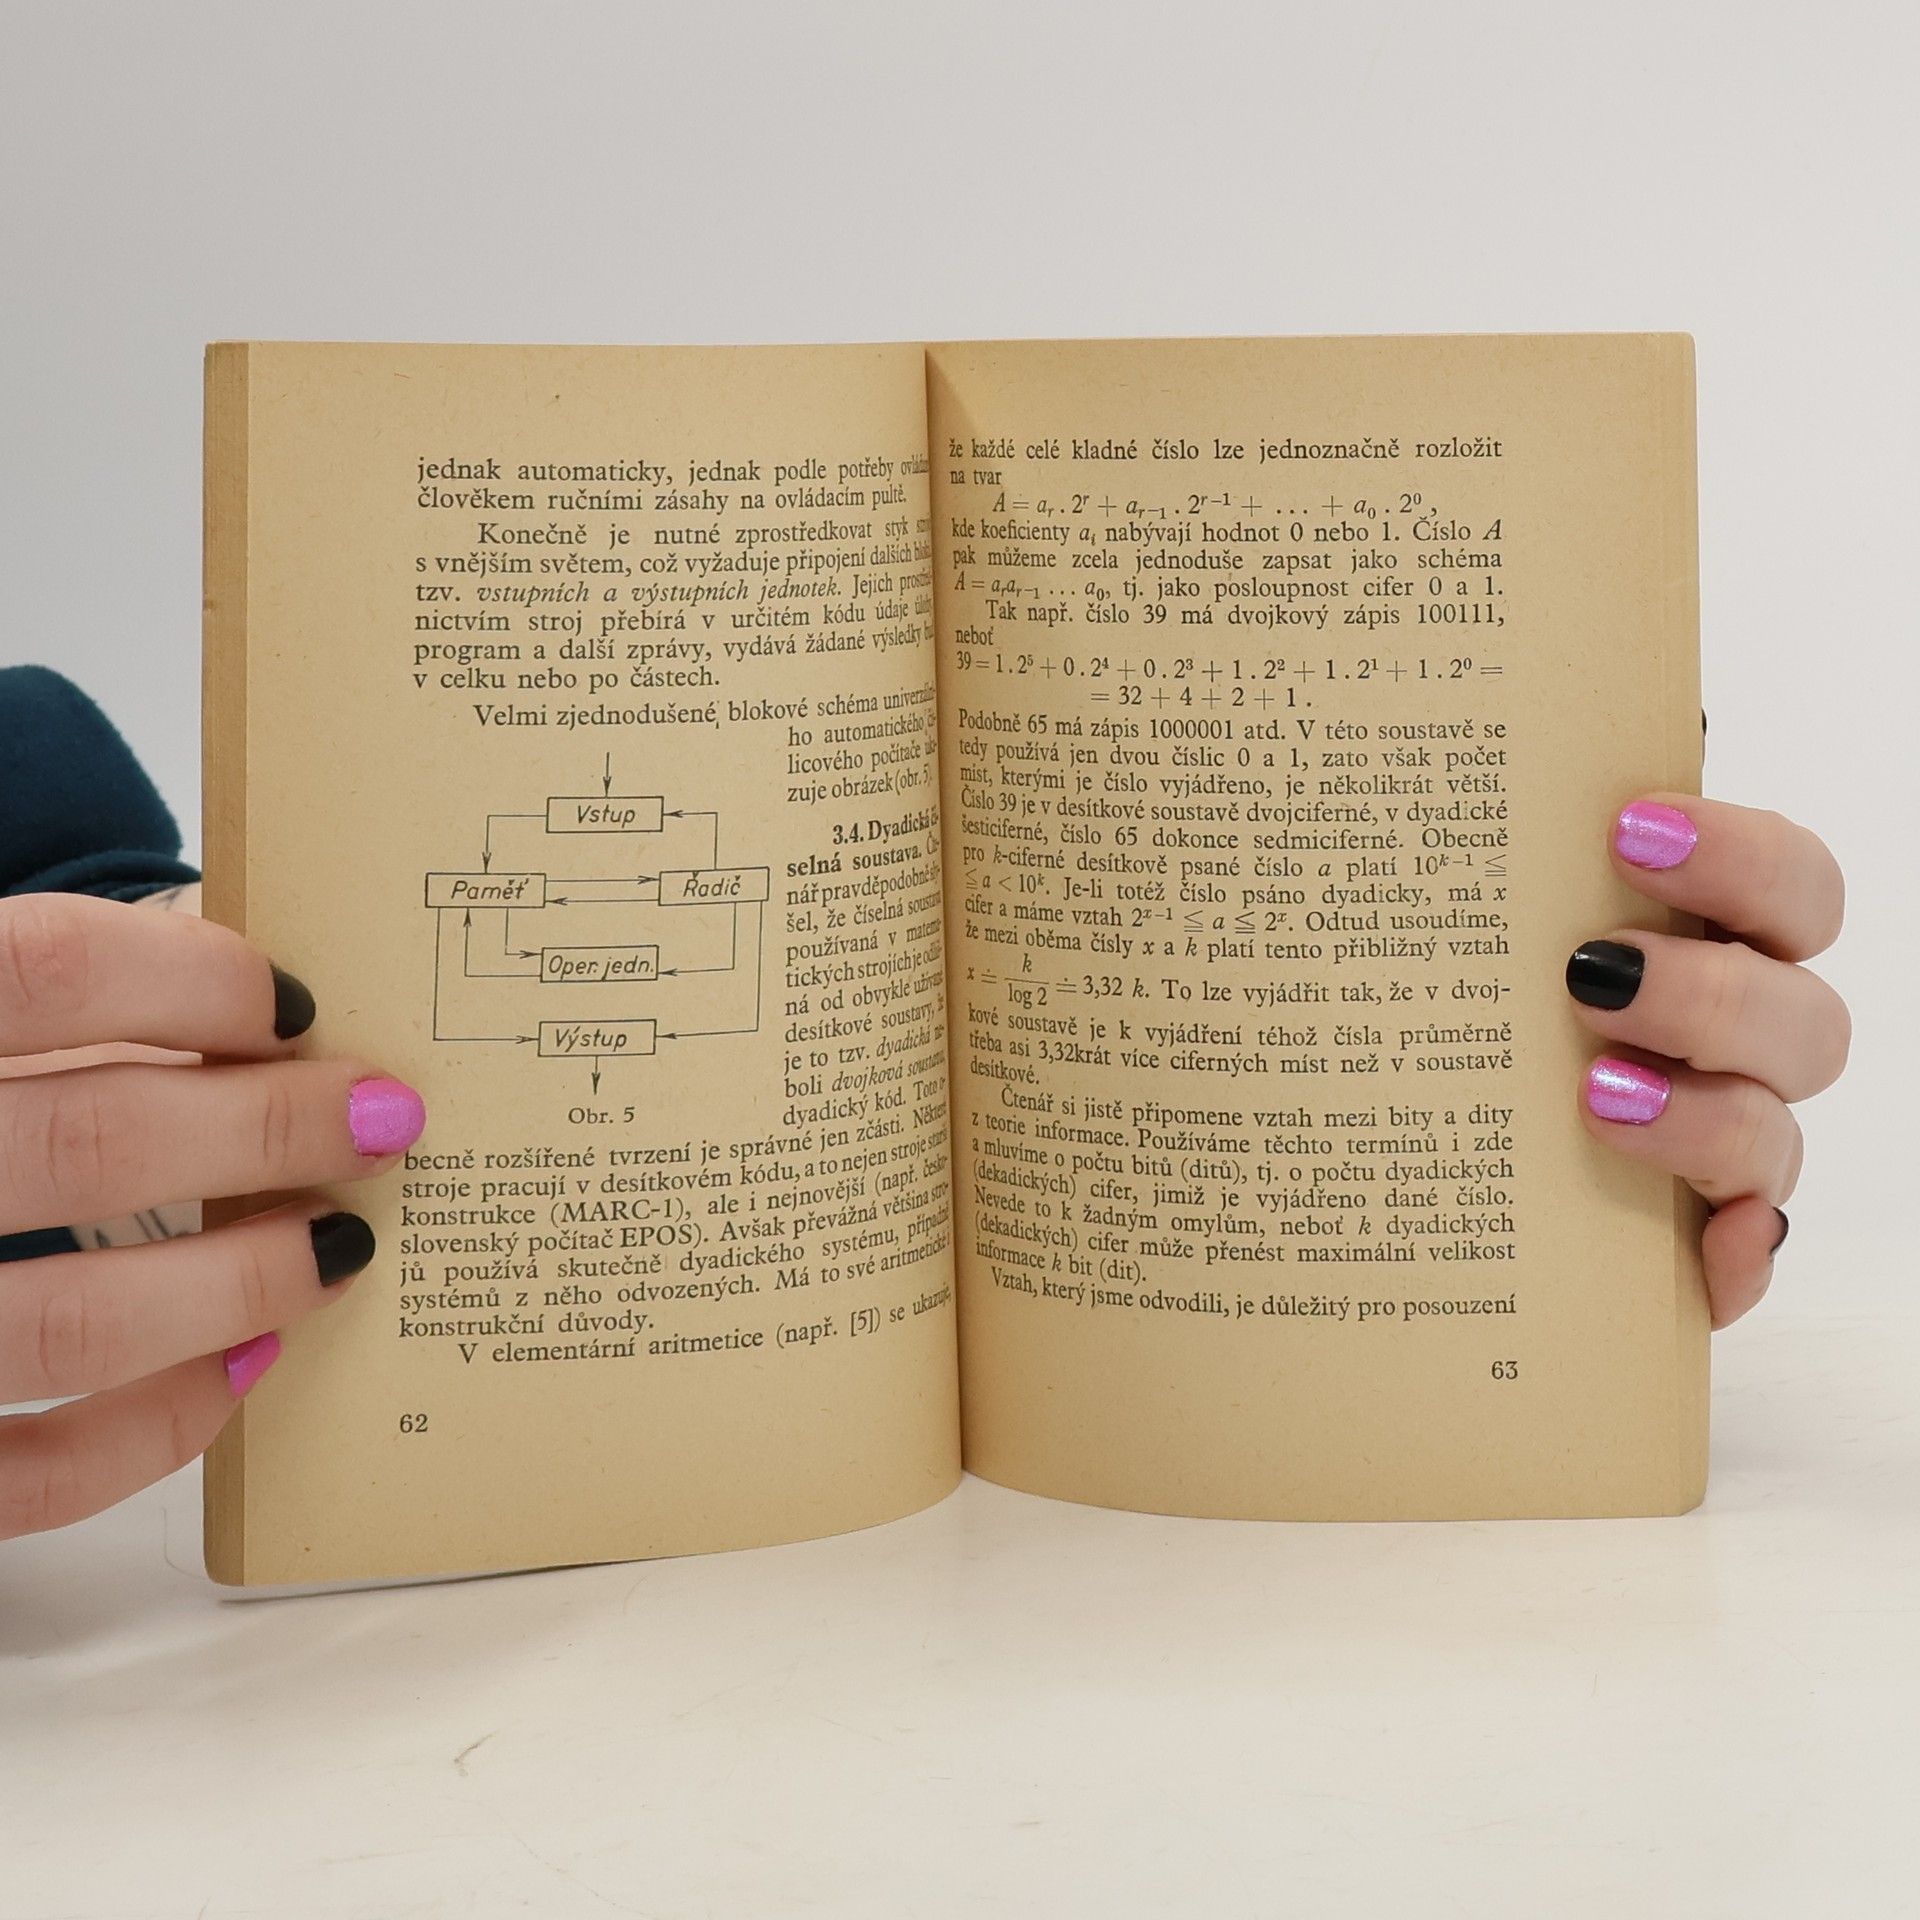 jednak automaticky, jednak podle potřeby
člověkem ručními zásahy na ovládacím pultě.
Konečně je nutné zprostředkovat styk
s vnějším světem, což vyžaduje připojení dalších
tzv. vstupních a výstupních jednotek. Jejich
nictvím stroj přebírá v určitém kódu údaje
program a další zprávy, vydává žádané výsledky
v celku nebo po částech.
Velmi zjednodušené blokové schéma
ho automatického
licového počítače
zuje obrázek (obr. 5).
Vstup
Paměť
Řadič
Oper. jedn.
Výstup
Obr. 5
3.4. Dyadická
selná soustava.
nář pravděpodobně
šel, že číselná
používaná v
tických strojích je
ná od obvyklé
desítkové soustavy,
je to tzv. dyadická
boli dvojková
dyadický kód. Toto
becně rozšířené tvrzení je správné jen zčásti. Některé
stroje pracují v desítkovém kódu, a to nejen stroje
konstrukce (MARC-1), ale i nejnovější (např.
slovenský počítač EPOS). Avšak převážná většina
jů používá skutečně dyadického systému, případně
systémů z něho odvozených. Má to své aritmetické
konstrukční důvody.
V elementární aritmetice (např. [5]) se ukazuje,
62
že každé celé kladné číslo lze jednoznačně rozložit
na tvar
A = aᵣ . 2ʳ + aᵣ₋₁ . 2ʳ⁻¹ + ... + a₀ . 2⁰,
kde koeficienty aᵢ nabývají hodnot 0 nebo 1. Číslo A
pak můžeme zcela jednoduše zapsat jako schéma
A = aᵣaᵣ₋₁ ... a₀, tj. jako posloupnost cifer 0 a 1.
Tak např. číslo 39 má dvojkový zápis 100111,
neboť
39 = 1 . 2⁵ + 0 . 2⁴ + 0 . 2³ + 1 . 2² + 1 . 2¹ + 1 . 2⁰ =
= 32 + 4 + 2 + 1 .
Podobně 65 má zápis 1000001 atd. V této soustavě se
tedy používá jen dvou číslic 0 a 1, zato však počet
míst, kterými je číslo vyjádřeno, je několikrát větší.
Číslo 39 je v desítkové soustavě dvojciferné, v dyadické
šesticiferné, číslo 65 dokonce sedmiciferné. Obecně
pro k-ciferné desítkově psané číslo a platí 10ᵏ⁻¹ ≦
≦ a < 10ᵏ. Je-li totéž číslo psáno dyadicky, má x
cifer a máme vztah 2ˣ⁻¹ ≦ a ≦ 2ˣ. Odtud usoudíme,
že mezi oběma čísly x a k platí tento přibližný vztah
x ≐ k / log 2 ≐ 3,32 k. To lze vyjádřit tak, že v dvoj-
kové soustavě je k vyjádření téhož čísla průměrně
třeba asi 3,32krát více ciferných míst než v soustavě
desítkové.
Čtenář si jistě připomene vztah mezi bity a dity
z teorie informace. Používáme těchto termínů i zde
a mluvíme o počtu bitů (ditů), tj. o počtu dyadických
(dekadických) cifer, jimiž je vyjádřeno dané číslo.
Nevede to k žádným omylům, neboť k dyadických
(dekadických) cifer může přenést maximální velikost
informace k bit (dit).
Vztah, který jsme odvodili, je důležitý pro posouzení
63